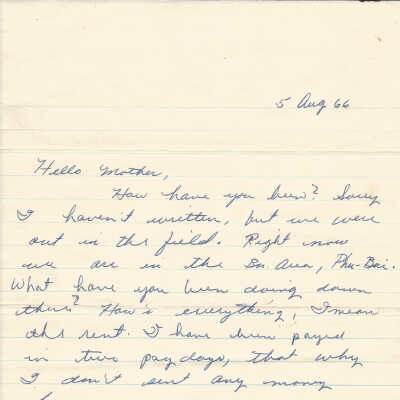 5 Aug 66
Hello Mother,
How have you been? Sorry
I haven't written, but we were
out in the field. Right now
we are in the Bn. Area, Phu-Bai.
What have you been doing down
there? How's everything, I mean
the rent. I have been payed
in two paydays, that why
I don't sent any money